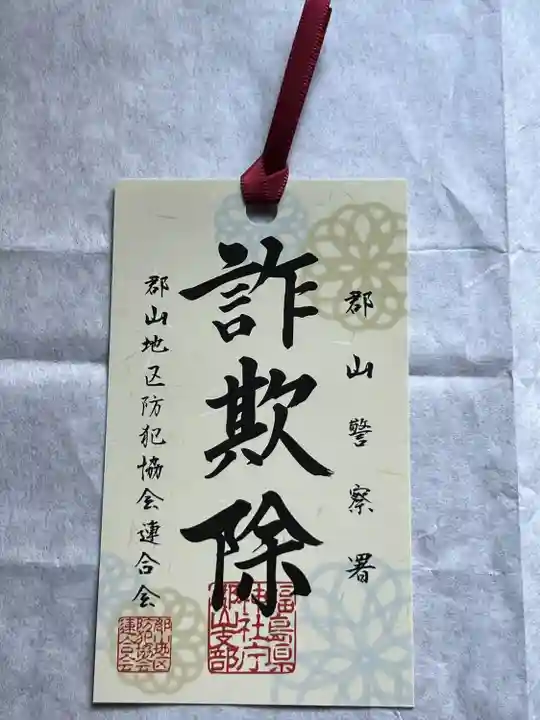 郡山警察署
詐欺除
郡山地区防犯協会連合会
福島県
神社庁
郡山支部
郡山地区
防犯協会
連合会